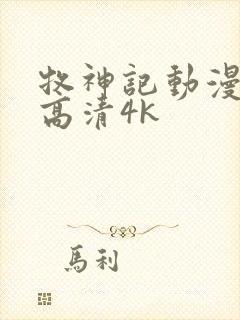 牧神記動漫
高清4K
馬利